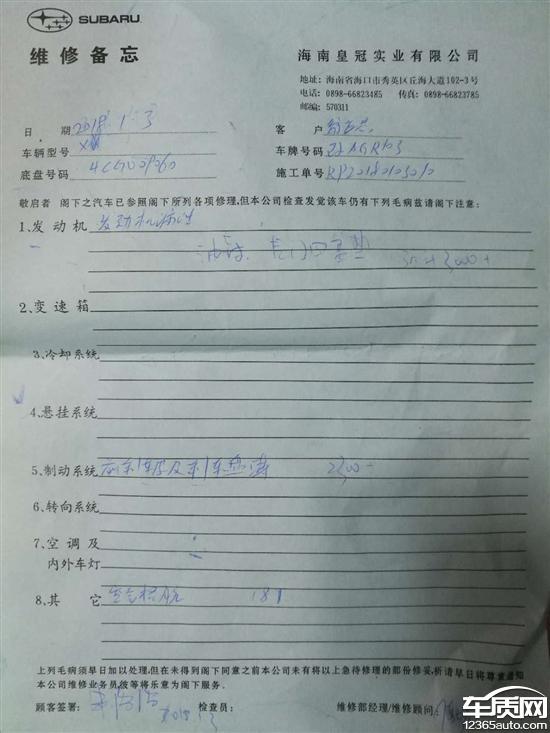 SUBARU
维修备忘
海南皇冠实业有限公司
地址: 海南省海口市秀英区丘海大道102-3号
电话: 0898-66823485 传真: 0898-66823785
邮编: 570311
日期 2018.1.3
客户
车辆型号
车牌号码
底盘号码 4CG009060
施工单号 RP20180103010
敬启者 阁下之汽车已参照阁下所列各项修理,但本公司检查发觉该车仍有下列毛病兹请阁下注意:
1.发动机 发动机
2.变速箱
3.冷却系统
4.悬挂系统
5.制动系统 2300-
6.转向系统
7.空调及
内外车灯
8.其它 181
上列毛病须早日加以处理,但在未得到阁下同意之前本公司未有将以上急待修理的部份修妥,祈请早日将尊意通知
本公司维修业务员彼等将乐意为阁下服务.
顾客签署: 检查员: 维修部经理/维修顾问:
车质网
www.12365auto.com